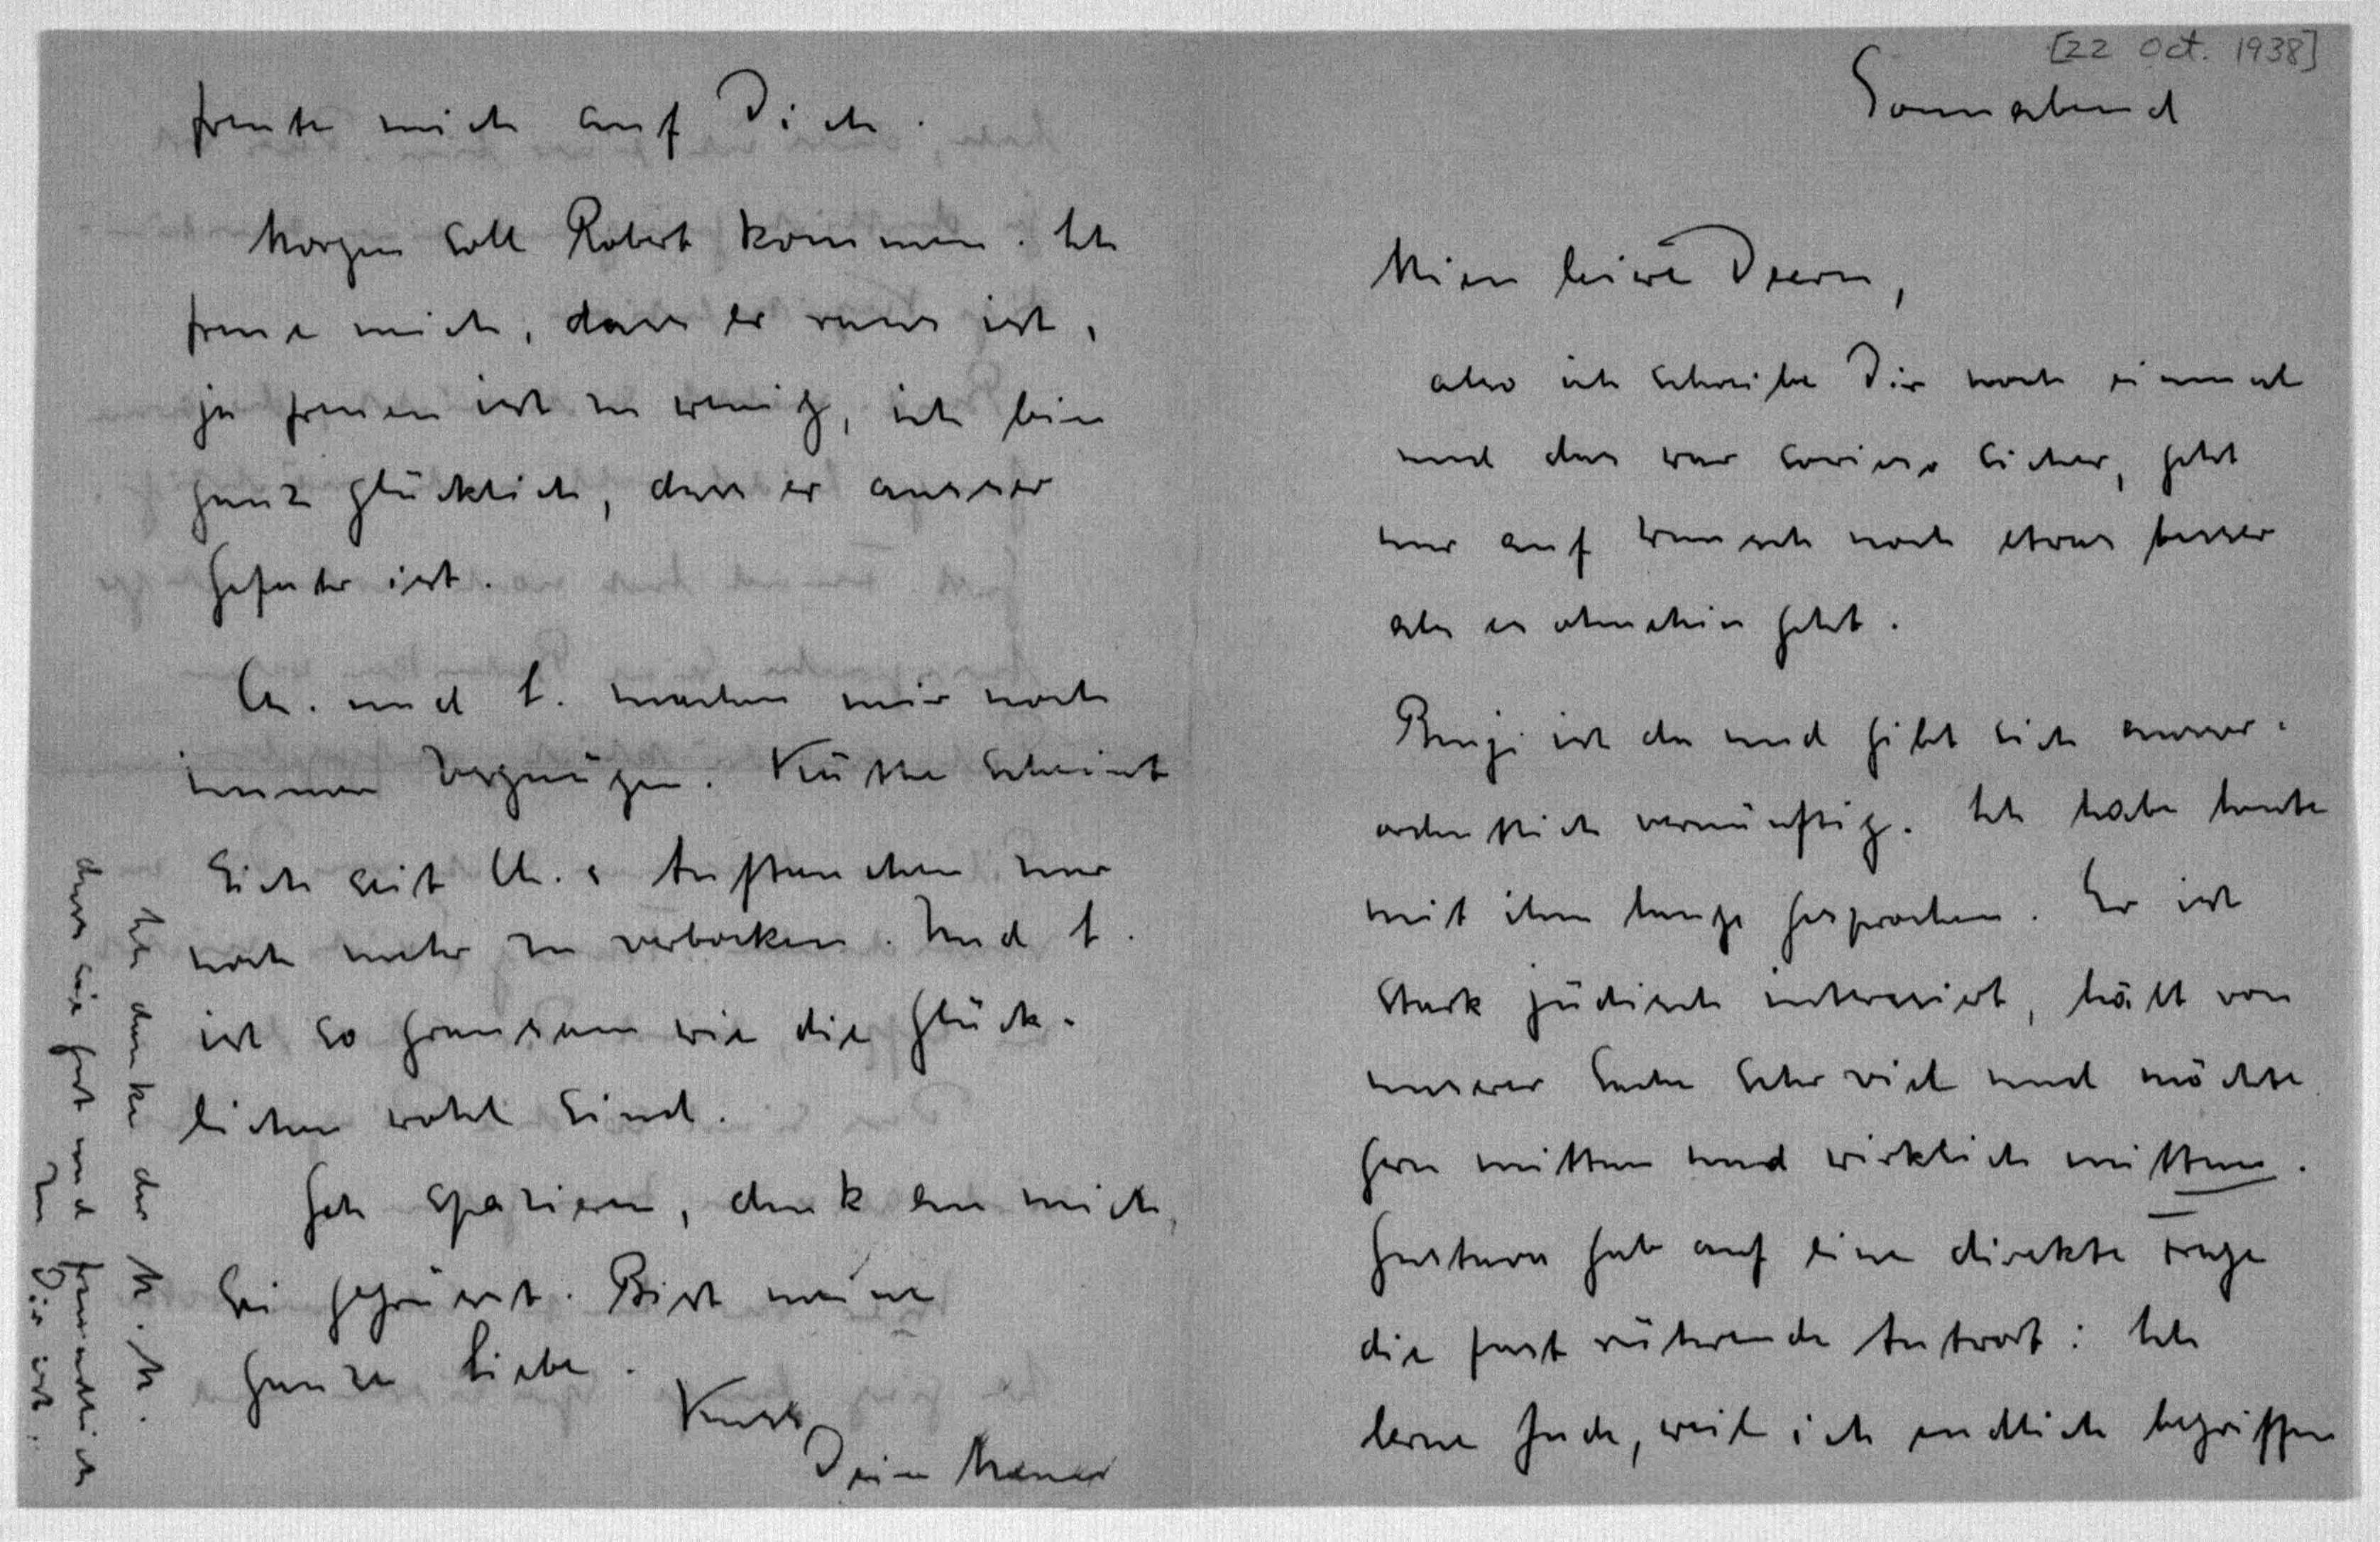 [22 Oct. 1938]
Sonnabend
Mien leiwe Deern,
also ich schreibe Dir noch einmal
und das war sowieso sicher, geht
nur auf Wunsch noch etwas besser
als es ohnehin geht.
Benji ist da und gibt sich ausser-
ordentlich vernünftig. Ich habe heute
mit ihm lange gesprochen. Er ist
stark jüdisch interessiert, hält von
unserer Sache sehr viel und möchte
gern mittun und wirklich mittun.
Gustava gab auf eine direkte Frage
die fast rührende Antwort: Ich
lerne Jude, weil ich endlich begriffen
freute mich auf Dich.
Morgen soll Robert kommen. Ich
freue mich, dass er raus ist,
ja freuen ist zu wenig, ich bin
ganz glücklich, dass er ausser
Gefahr ist.
Ch. und L. machen mir noch
immer Vergnügen. Küsse scheint
sich seit Ch.s Auftauchen nur
noch mehr zu verbocken. Und L.
ist so grausam wie die Glück-
lichen wohl sind.
Geh spazieren, denk an mich,
sei gegrüsst. Bist meine
ganze Liebe.
Kuss
Dein Manne
Ich danke der M. M.
dass sie gut und freundlich
zu Dir ist.